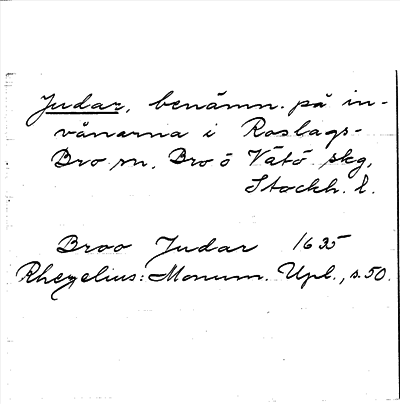 Judar, benämn. på in-
vånarna i Roslags-
Bro sn, Bro ö Vätö skg,
Stockh. l.
Broo Judar 1635
Rhezelius: Monum. Upl., s. 50.